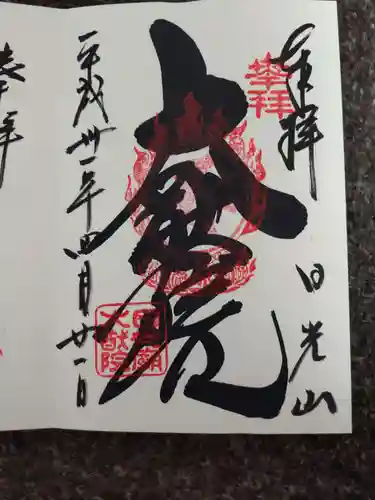 奉拝
日光山
奉拝
大猷院
日光廟大猷院
平成卅一年四月廿一日
奉拝